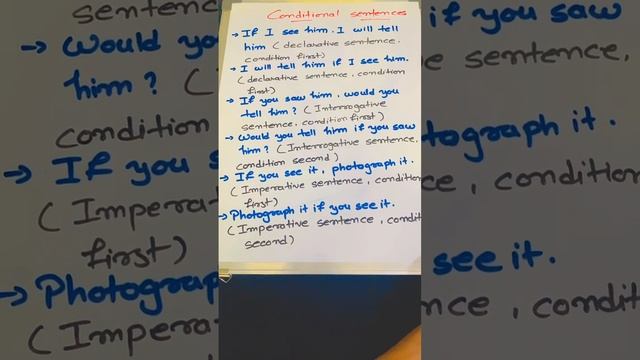 Conditional sentences
→ If I see him. I will tell
him (declarative sentence.
condition first)
→ I will tell him if I see him.
(declarative sentence, condition
first)
→ If you saw him, would you
tell him? (Interrogative
sentence, condition first)
→ Would you tell him if you saw
him? (Interrogative sentence,
condition second)
→ If you see it, photograph it.
(Imperative sentence, condition
first)
→ Photograph it if you see it.
(Imperative sentence, condit
second)
sentenc
→ Would you
him? (
condition
→ If you s
(Impera
first)
→ Photograp
(Impera
if you saw
sentence,
tograph it.
, condition
see it.
nce, condit